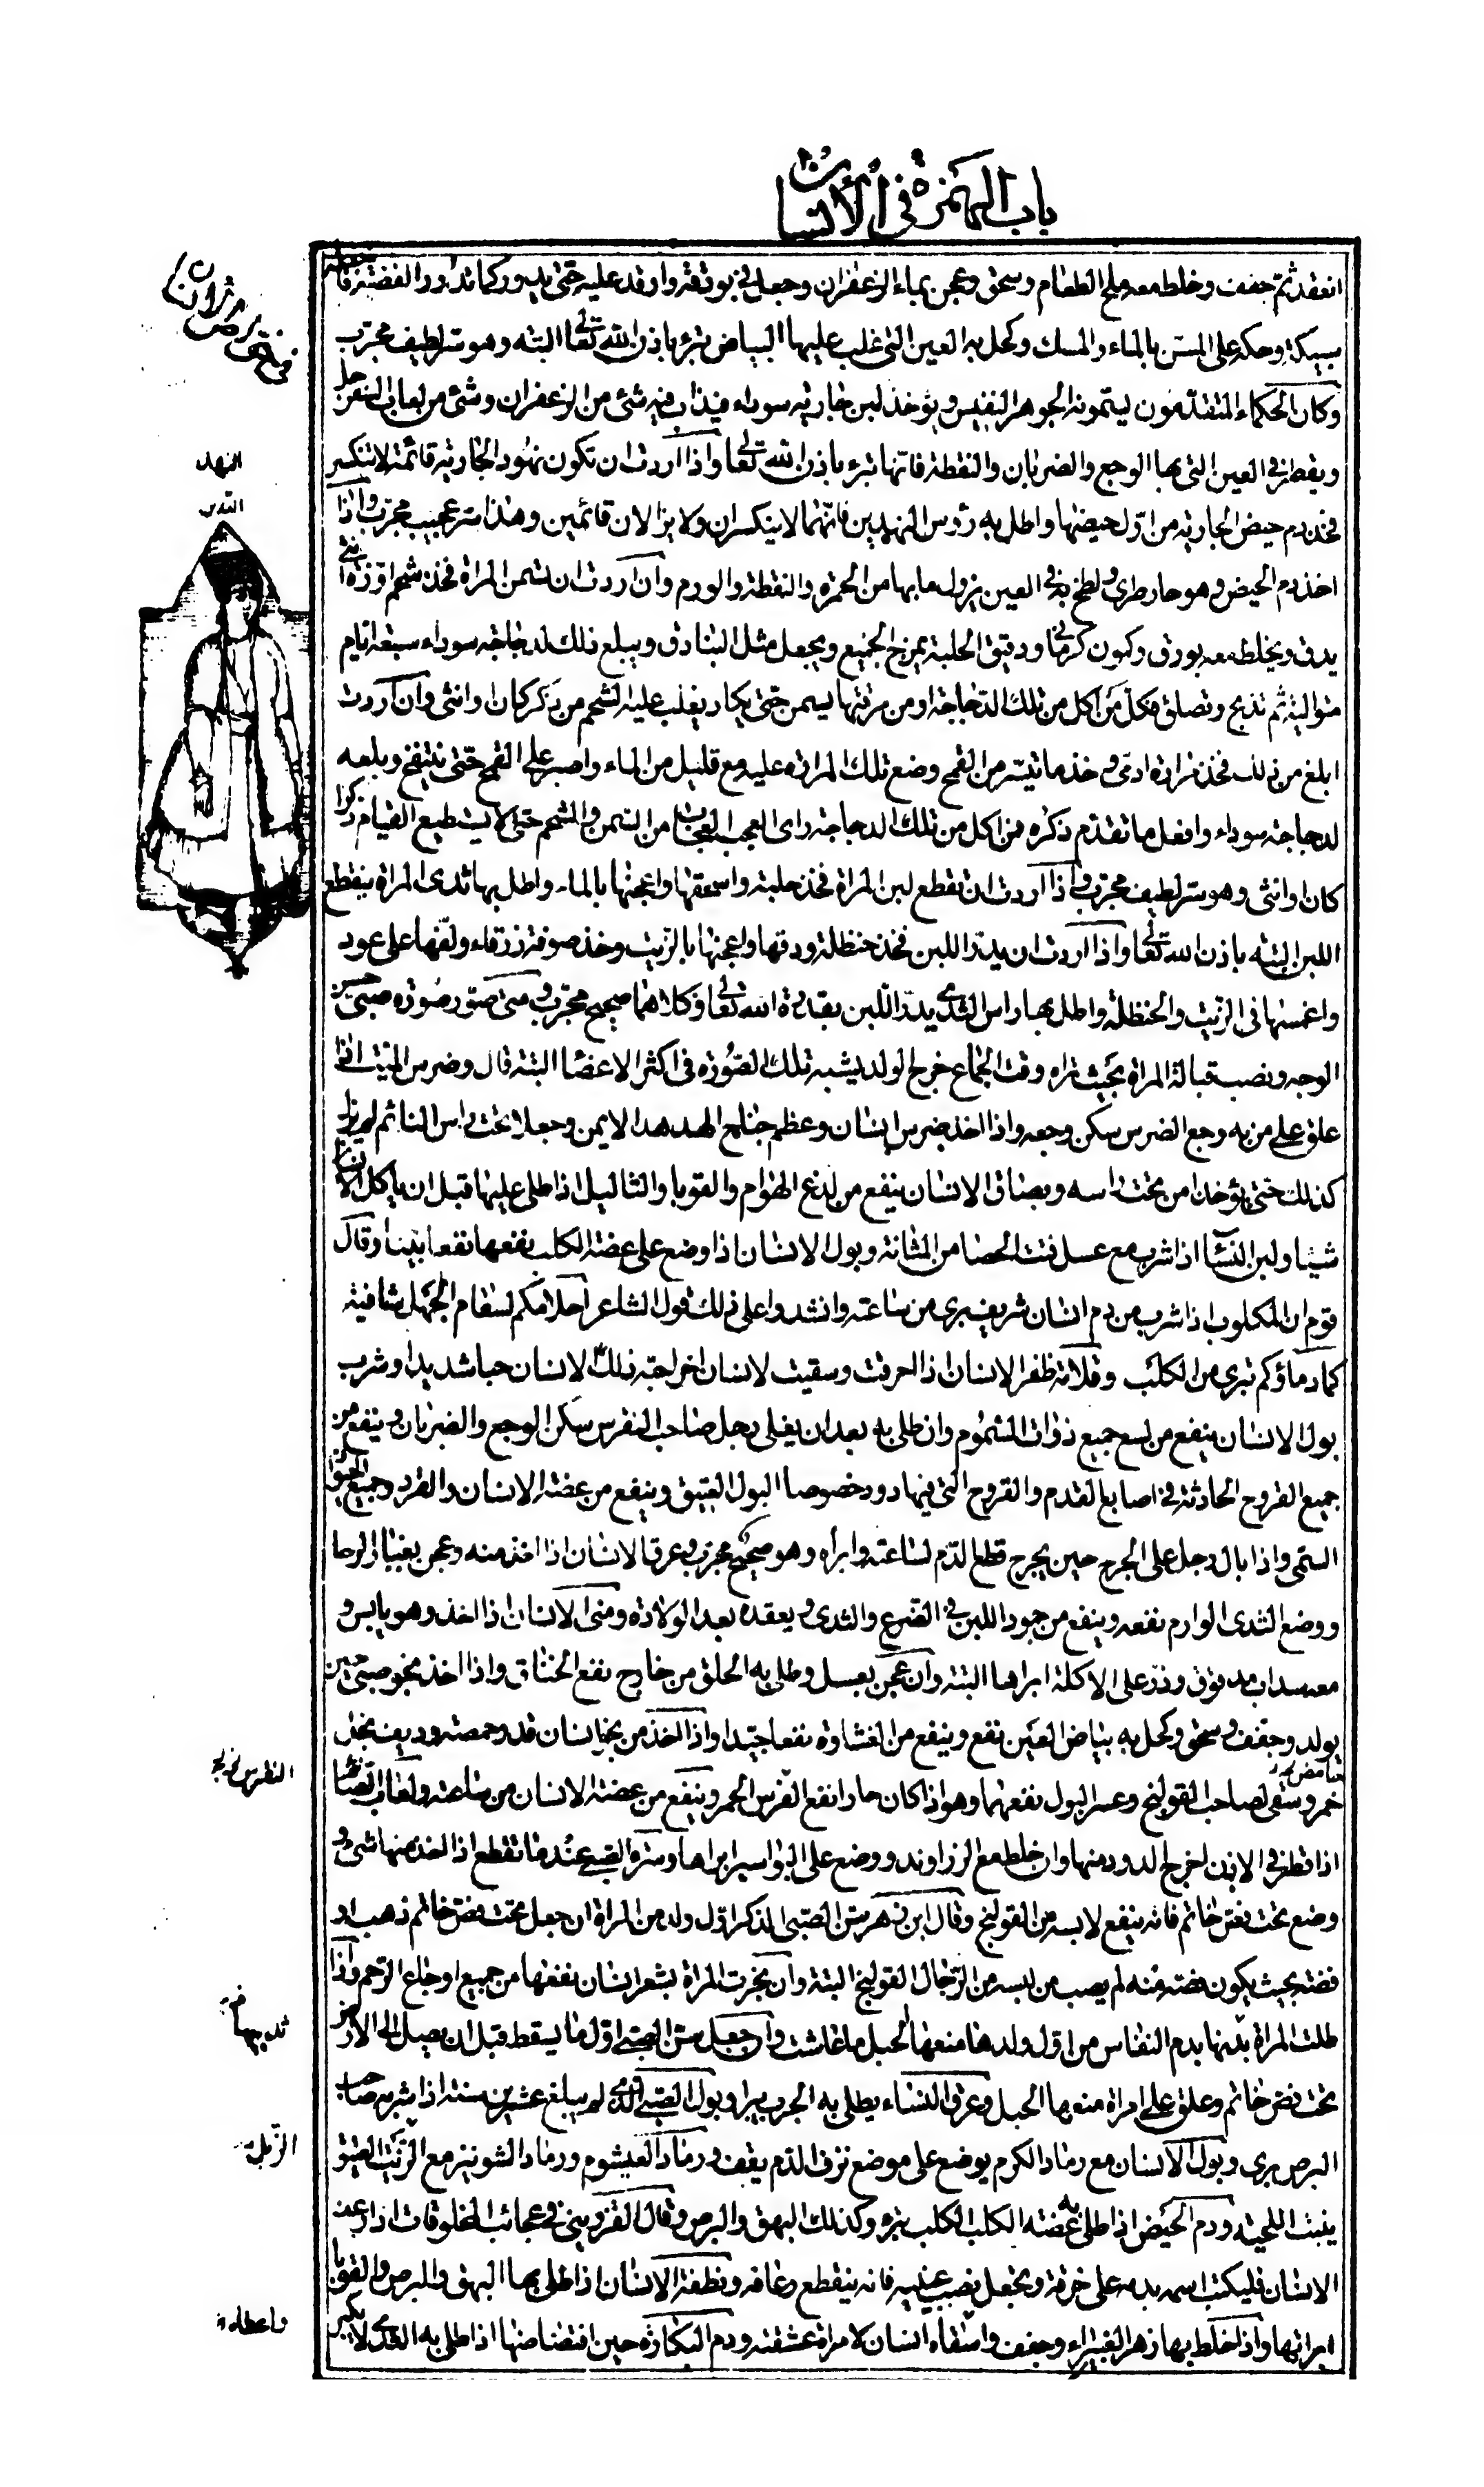 باب الهمزة في الإنسان
انعقد ثم جفف وخلط معه ملح الطعام وسحق وعجن بماء الزعفران وجعل في بوتقة واوقد عليه حتى يدور كما تدور الفضة
سبيكة وحكه على المسن بالماء والمسك وكحل به العين التي غلب عليها البياض تبرء باذن الله تعالى البته وهو سر لطيف مجرب
وكان الحكماء المتقدمون يسمونه الجوهر النفيس ويؤخذ لبن جارية سوداء فيذاب فيه شئ من الزعفران وشئ من لعاب السفرجل
ويقطر في العين التي بها الوجع والضربان والنقطة فانها تبرء باذن الله تعالى واذا اردت ان تكون نهود الجارية قائمة لا تنكسر
فخذ دم حيض الجارية من اول حيضها واطل به رؤس النهدين فانهما لا ينكسران ولا يزالان قائمين وهذا سر عجيب مجرب واذا
اخذ دم الحيض وهو حار طري ولطخ به في العين يزول ما بها من الحمرة والنقطة والورم وان اردت ان تسمن المراة فخذ شحم اوزة انثى
يدق ويخلط معه بورق وكمون كرماني ودقيق الحلبة يمزج الجميع ويجعل مثل البنادق ويبلع ذلك لدجاجة سوداء سبعة ايام
متوالية ثم تذبح وتصلق فكل من اكل من تلك الدجاجة او من مرقتها يسمن حتى يكاد يغلب عليه الشحم من ذكر كان او انثى وان اردت
ابلغ من ذلك فخذ مرارة ادمي وخذ ما تيسر من القمح وضع تلك المرارة عليه مع قليل من الماء واصبر على القمح حتى ينتفخ وبلعه
لدجاجة سوداء وافعل ما تقدم ذكره فمن اكل من تلك الدجاجة راى العجب العجاب من السمن والشحم حتى لا يستطيع القيام ذكرا
كان او انثى وهو سر لطيف مجرب واذا اردت ان تقطع لبن المراة فخذ حلبة واسحقها واعجنها بالماء واطل بها ثدى المراة ينقطع
اللبن البته باذن الله تعالى واذا اردت ان يدر اللبن فخذ حنظلة ودقها واعجنها بالزيت وخذ صوفة زرقاء ولفها على عود
واغمسها في الزيت والحنظلة واطل بها راس الثدي يدر اللبن بقدرة الله تعالى وكلاهما صحيح مجرب ومتى صور صورة صبي حسن
الوجه ونصب قبالة المراة بحيث تراه وقت الجماع خرج الولد يشبه تلك الصورة في اكثر الاعضا البتة قال وضرس الميت اذا
علق على من به وجع الضرس سكن وجعه واذا اخذ ضرس انسان وعظم جناح الهدهد الايمن وجعلا تحت راس النائم لم يزل
كذلك حتى يؤخذا من تحت راسه وبصاق الانسان ينفع من لدغ الهوام والقوبا والثاليل اذا طلى عليها قبل ان ياكل الانسان
شيئا ولبن النسا اذا شرب مع عسل فتت الحصا من المثانة وبول الانسان اذا وضع على عضة الكلب نفعها نفعا بينا وقال
قوم ان المكلوب اذا شرب من دم انسان شريف برى من ساعته وانشدوا على ذلك قول الشاعر احلامكم لسقام الجهل شافية
كما دماؤكم تبرى من الكلب وقلامة ظفر الانسان اذا احرقت وسقيت لانسان اخر احبه ذلك الانسان حبا شديدا وشرب
بول الانسان ينفع من لسع جميع ذوات السموم وان طلى به بعد ان يغلى رجل صاحب النقرس سكن الوجع والضربان وينفع من
جميع القروح الحادثة في اصابع القدم والقروح التي فيها دود خصوصا البول العتيق وينفع من عضة الانسان والقرد وجميع الحيوان
السمى واذا بال رجل على الجرح حين يجرح قطع الدم لساعته وابرأه وهو صحيح مجرب وعرق الانسان اذا اخذ منه وعجن بغبار الرحا
ووضع الثدى الوارم نفعه وينفع من جمود اللبن في الضرع والثدى ويعقده بعد الولادة ومنى الانسان اذا اخذ وهو يابس و
معه سداب مدقوق وذر على الاكلة ابراها البتة وان عجن بعسل وطلى به الحلق من خارج نفع الخناق واذا اخذ نجو صبي حين
يولد وجفف وسحق وكحل به بياض العين نفع وينفع من الغشاوة نفعا جيدا واذا اخذ من نجو انسان قدر حمصة وديف بخل
خمر وسقى لصاحب القولنج وعسر البول نفعهما وهو اذا كان حارا نفع الفرس الحمر وينفع من عضة الانسان من ساعته ولعاب الصائم
اذا قطر في الاذن اخرج الدود منها وان خلط مع الزراوند ووضع على البواسير ابراها وسرة الصبي عندما تقطع اذا اخذ منها شئ و
وضع تحت فص خاتم فانه ينفع لابسه من القولنج وقال ابن زهر سن الصبي الذكر اول ولد من المراة ان جعل تحت فص خاتم ذهب او
فضة بحيث يكون فصه منه لم يصب من لبسه من الرجال القولنج البتة وان بخرت المراة بشعر انسان نفعها من جميع اوجاع الرحم واذا
طلت المراة بدنها بدم النفاس من اول ولدها منعها الحبل ما عاشت وان جعل سن الصبي اول ما يسقط قبل ان يصل الى الارض
تحت فص خاتم وعلق على امراة منعها الحبل وعرق النساء يطلى به الجرب يبرا وبول الصبي الذي لم يبلغ عشرين سنة اذا شربه صاحب
البرص برى وبول الانسان مع رماد الكرم يوضع على موضع نزف الدم يقف ورماد القيشوم ورماد الشونيز مع الزيت العتيق
ينبت اللحية ودم الحيض اذا طلى به عضة الكلب الكلب تبرء وكذلك البهق والبرص وقال القزويني في عجائب المخلوقات اذا رعف
الانسان فليكتب اسمه بدمه على خرقة ويجعل نصب عينيه فانه ينقطع رعافه ونطفة الانسان اذا طلى بها البهق والبرص والقوبا
ابراتها واذا خلط بها زهر الغبيراء وجفف واسقاه انسان لامراة عشقته ودم البكارة حين افتضاضها اذا طلى به الثدي لا يكبر
النهد
الثدى